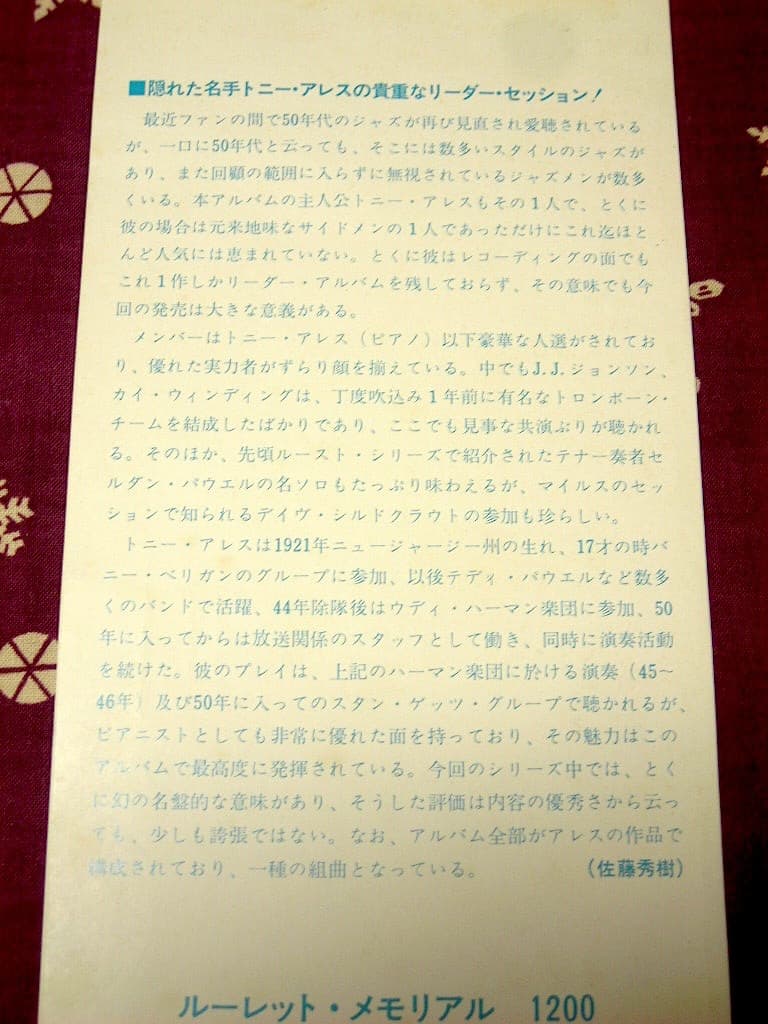 ■隠れた名手トニー・アレスの貴重なリーダー・セッション！
最近ファンの間で50年代のジャズが再び見直され愛聴されている
が、一口に50年代と云っても、そこには数多いスタイルのジャズが
あり、また回顧の範囲に入らずに無視されているジャズメンが数多
くいる。本アルバムの主人公トニー・アレスもその1人で、とくに
彼の場合は元来地味なサイドメンの1人であっただけにこれ迄ほと
んど人気には恵まれていない。とくに彼はレコーディングの面でも
これ1作しかリーダー・アルバムを残しておらず、その意味でも今
回の発売は大きな意義がある。
メンバーはトニー・アレス（ピアノ）以下豪華な人選がされてお
り、優れた実力者がずらり顔を揃えている。中でもJ.J.ジョンソン、
カイ・ウィンディングは、丁度吹込み1年前に有名なトロンボーン・
チームを結成したばかりであり、ここでも見事な共演ぶりが聴かれ
る。そのほか、先頃ルースト・シリーズで紹介されたテナー奏者セ
ルダン・パウエルの名ソロもたっぷり味わえるが、マイルスのセッ
ションで知られるデイヴ・シルドクラウトの参加も珍らしい。
トニー・アレスは1921年ニュージャージー州の生れ、17才の時バ
ニー・ベリガンのグループに参加、以後テディ・パウエルなど数多
くのバンドで活躍、44年除隊後はウディ・ハーマン楽団に参加、50
年に入ってからは放送関係のスタッフとして働き、同時に演奏活動
を続けた。彼のプレイは、上記のハーマン楽団に於ける演奏（45〜
46年）及び50年に入ってのスタン・ゲッツ・グループで聴かれるが、
ピアニストとしても非常に優れた面を持っており、その魅力はこの
アルバムで最高度に発揮されている。今回のシリーズ中では、とく
に幻の名盤的な意味があり、そうした評価は内容の優秀さから云っ
ても、少しも誇張ではない。なお、アルバム全部がアレスの作品で
構成されており、一種の組曲となっている。　（佐藤秀樹）
ルーレット・メモリアル　1200